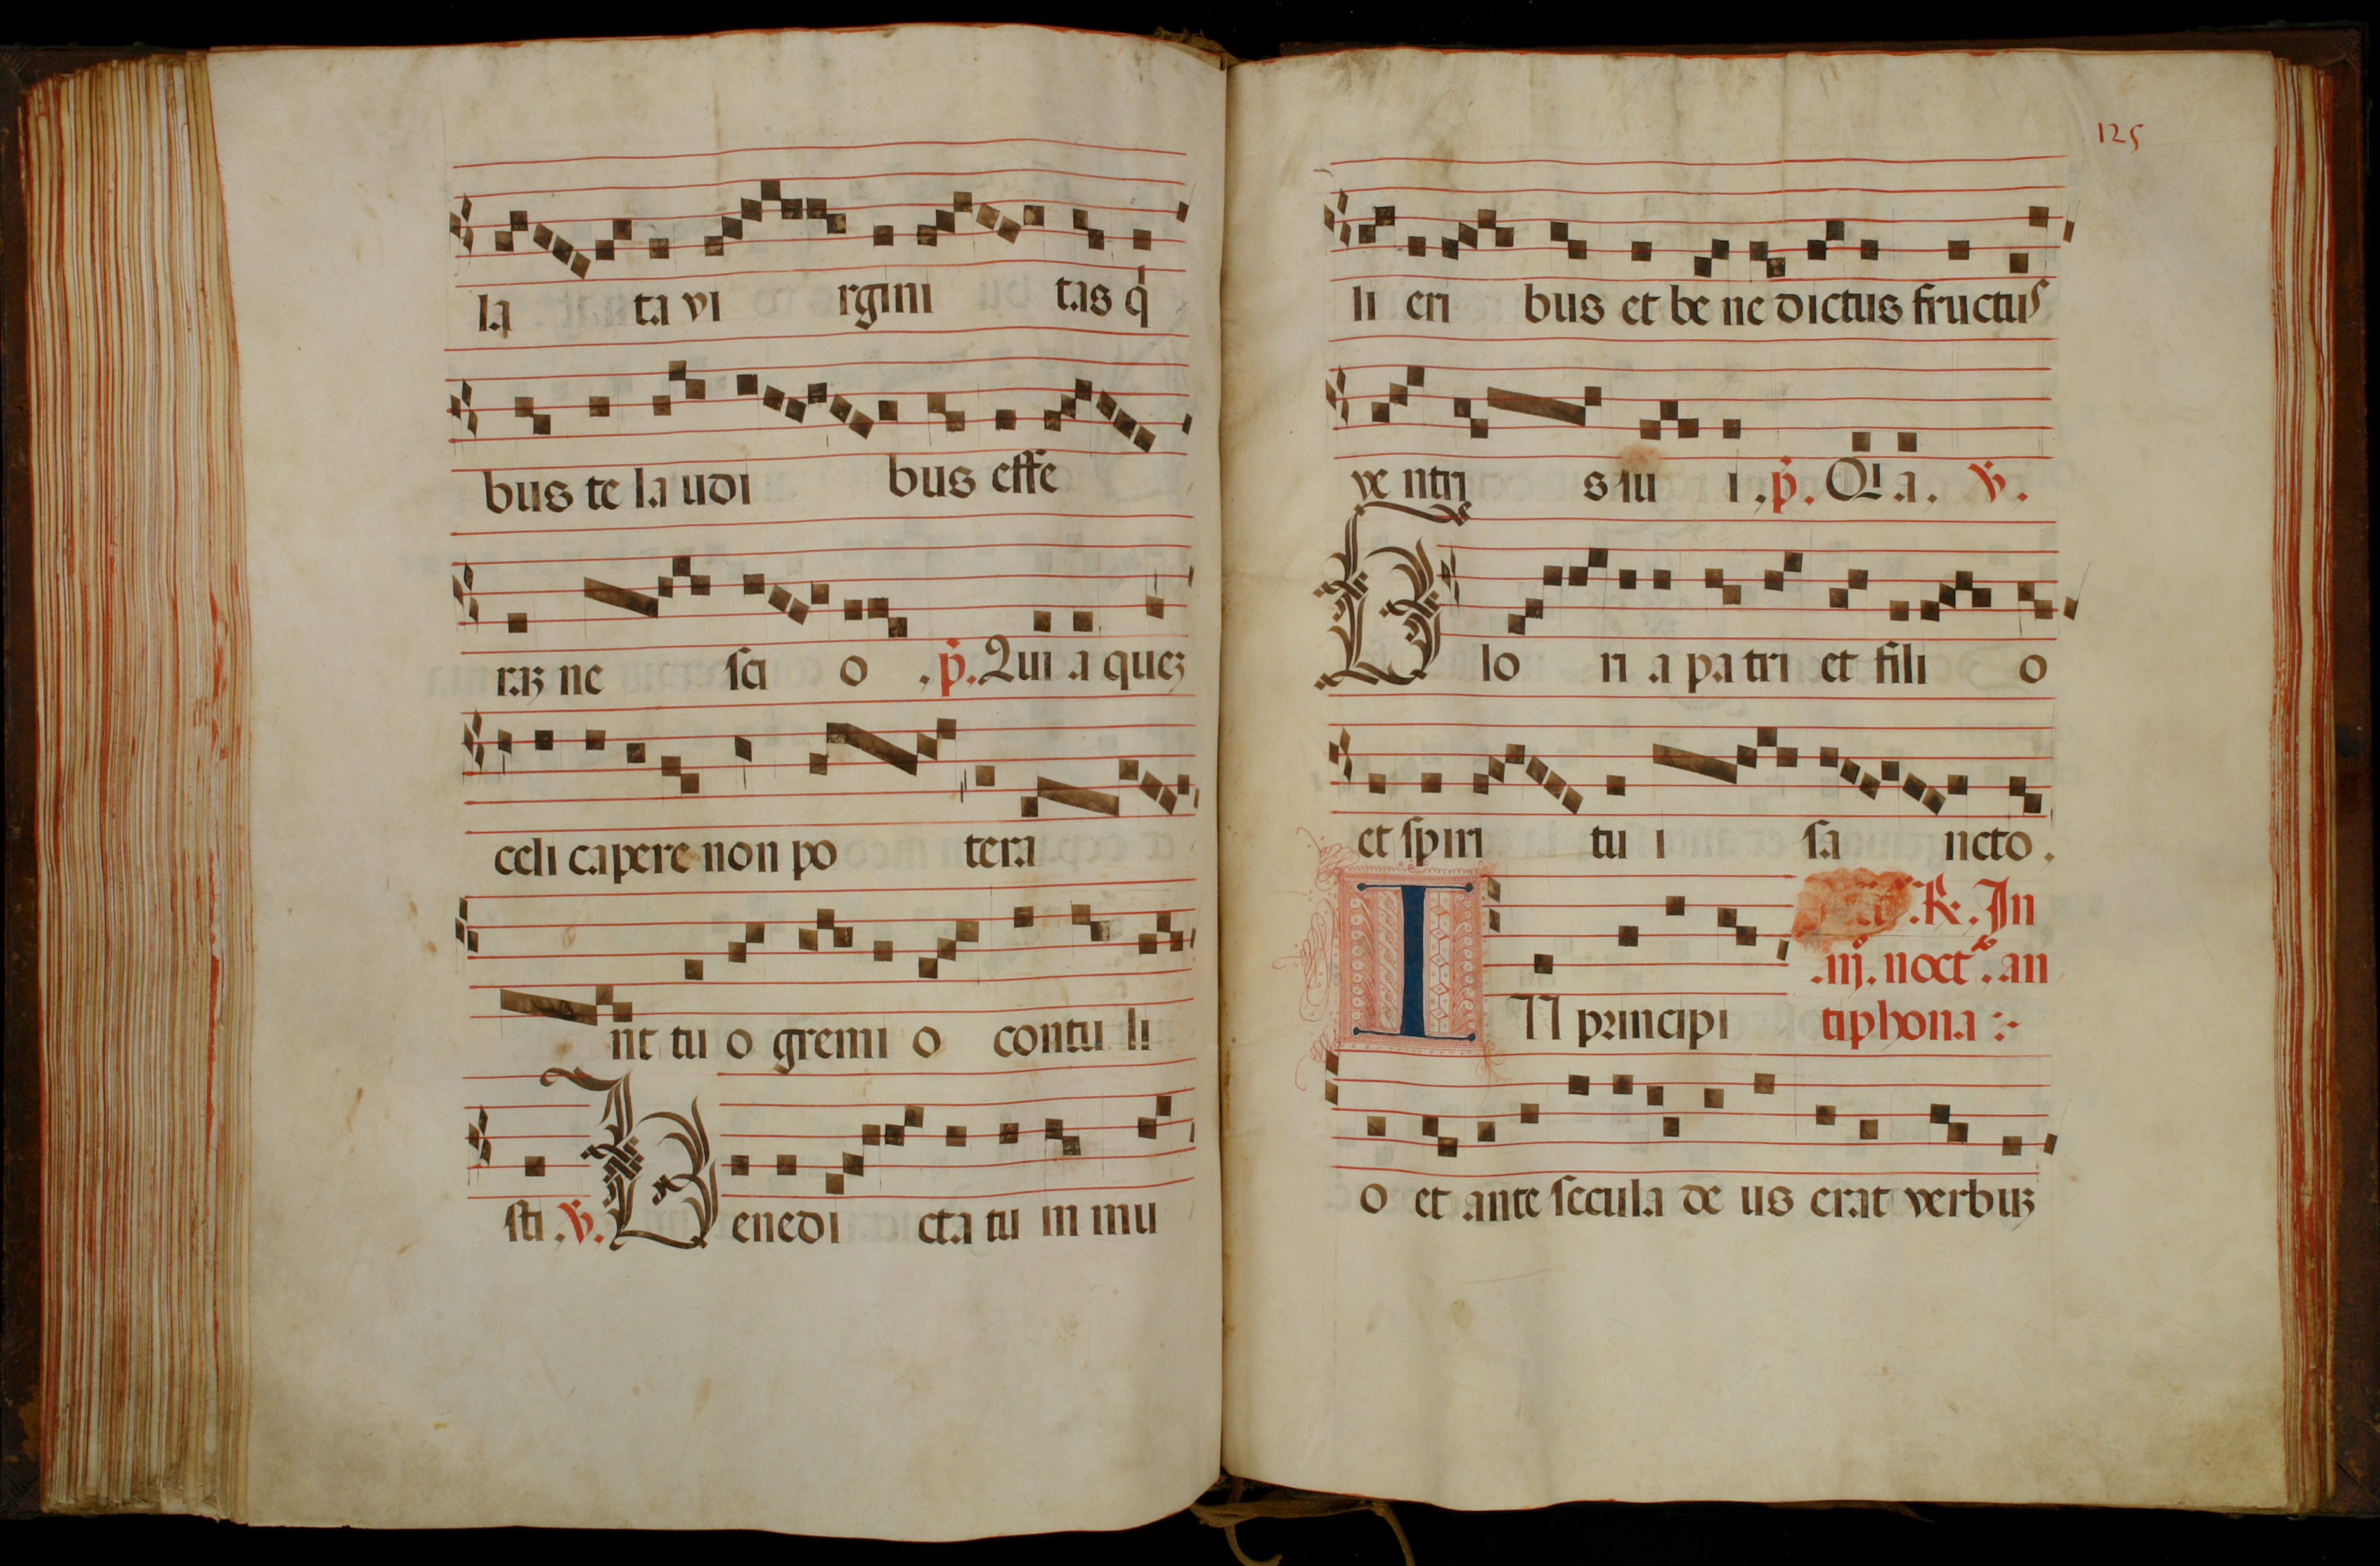 la ta vi rgini tas q̇
bus te la udi bus effe
raꝫ ne ſci o .p̄. Qui a queꝫ
celi capere non po tera
nt tu o gremi o contu li
ſti .v̄. Benedi cta tu in mu
125
li eri bus et be ne dictus fructus
ve ntri s tu i .p̄. Qi .a. v̄.
Glo ri a pa tri et fili o
et ſpiri tu i ſa ncto .
.℟. In
.iij. noct̾. an
IN principi tiphona
o et ante ſecula de us erat verbuꝫ